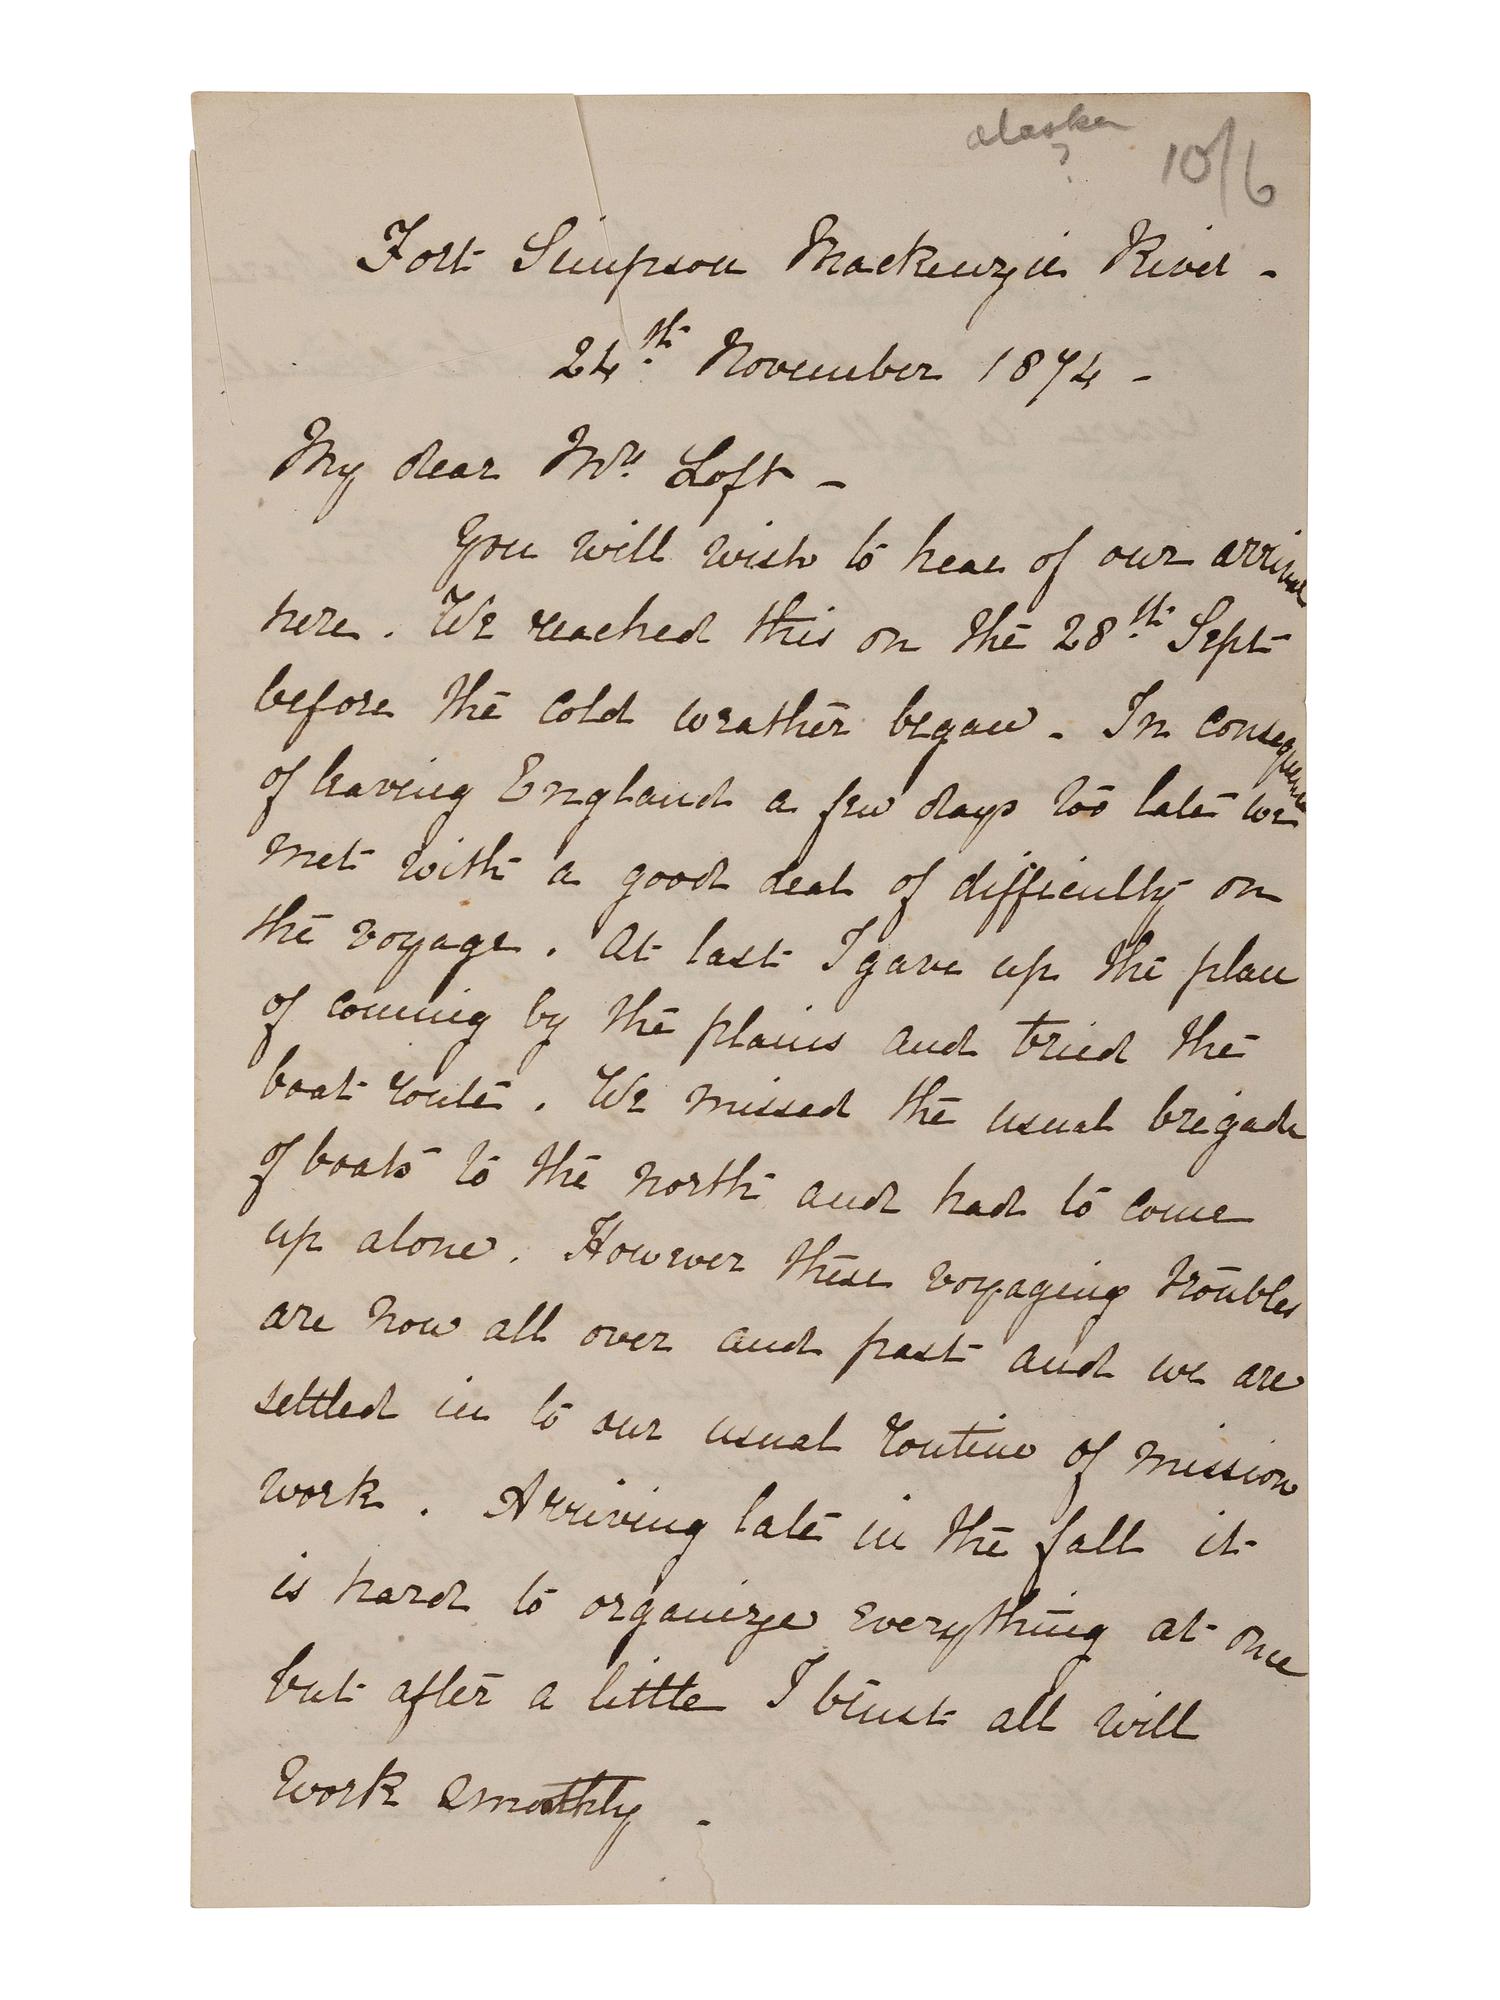 alaska
?
10/6
Fort Simpson Mackenzie River -
24th November 1874 -
My dear Mrs Loft -
You will wish to hear of our arrival
here. We reached this on the 28th Sept
before the cold weather began - In consequence
of leaving England a few days too late we
met with a good deal of difficulty on
the voyage. At last I gave up the plan
of coming by the plains and tried the
boat route. We missed the usual brigade
of boats to the north and had to come
up alone. However these voyaging troubles
are now all over and past and we are
settled in to our usual routine of mission
work. Arriving late in the fall it
is hard to organize everything at once
but after a little I trust all will
work smoothly -